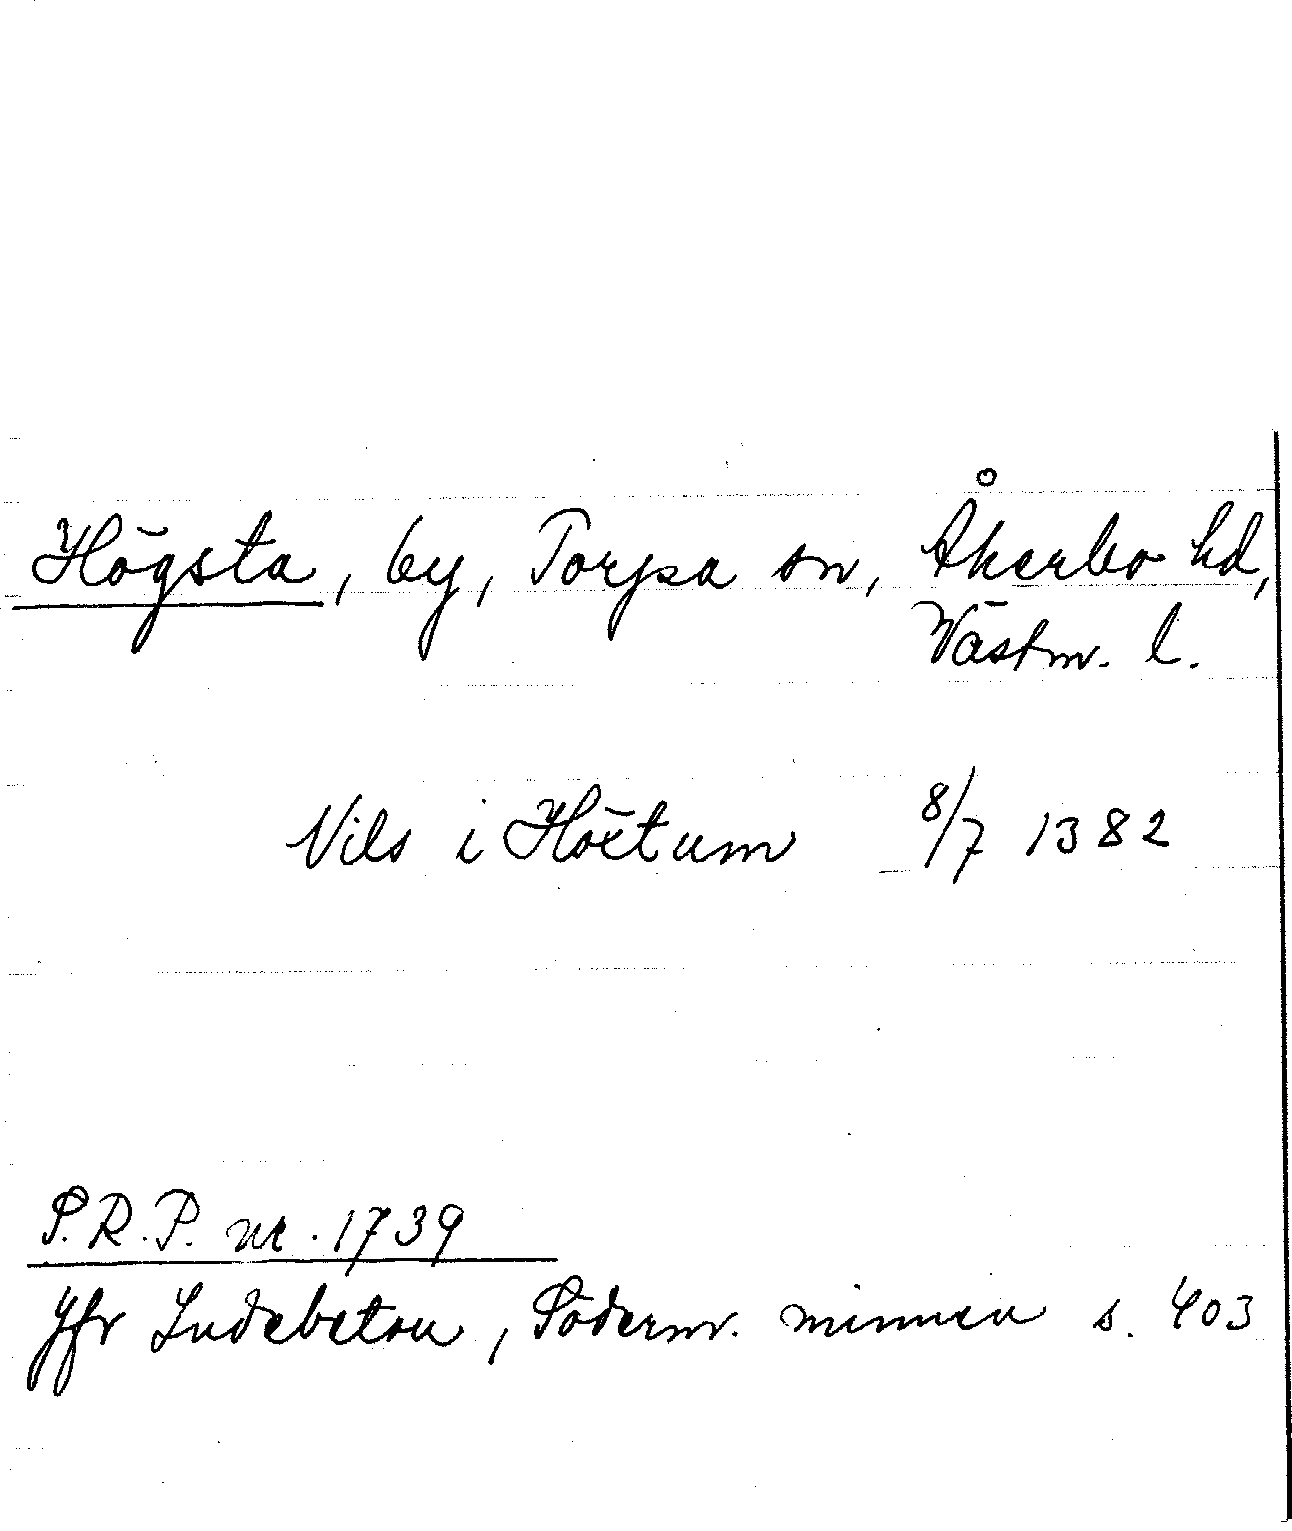 Högsta, by, Torpsa sn, Åkerbo hd,
Västm. l.
Nils i Höxtum 8/7 1382
S.R.P. nr. 1739
Jfr Indebetou, Söderm. minnen s. 403